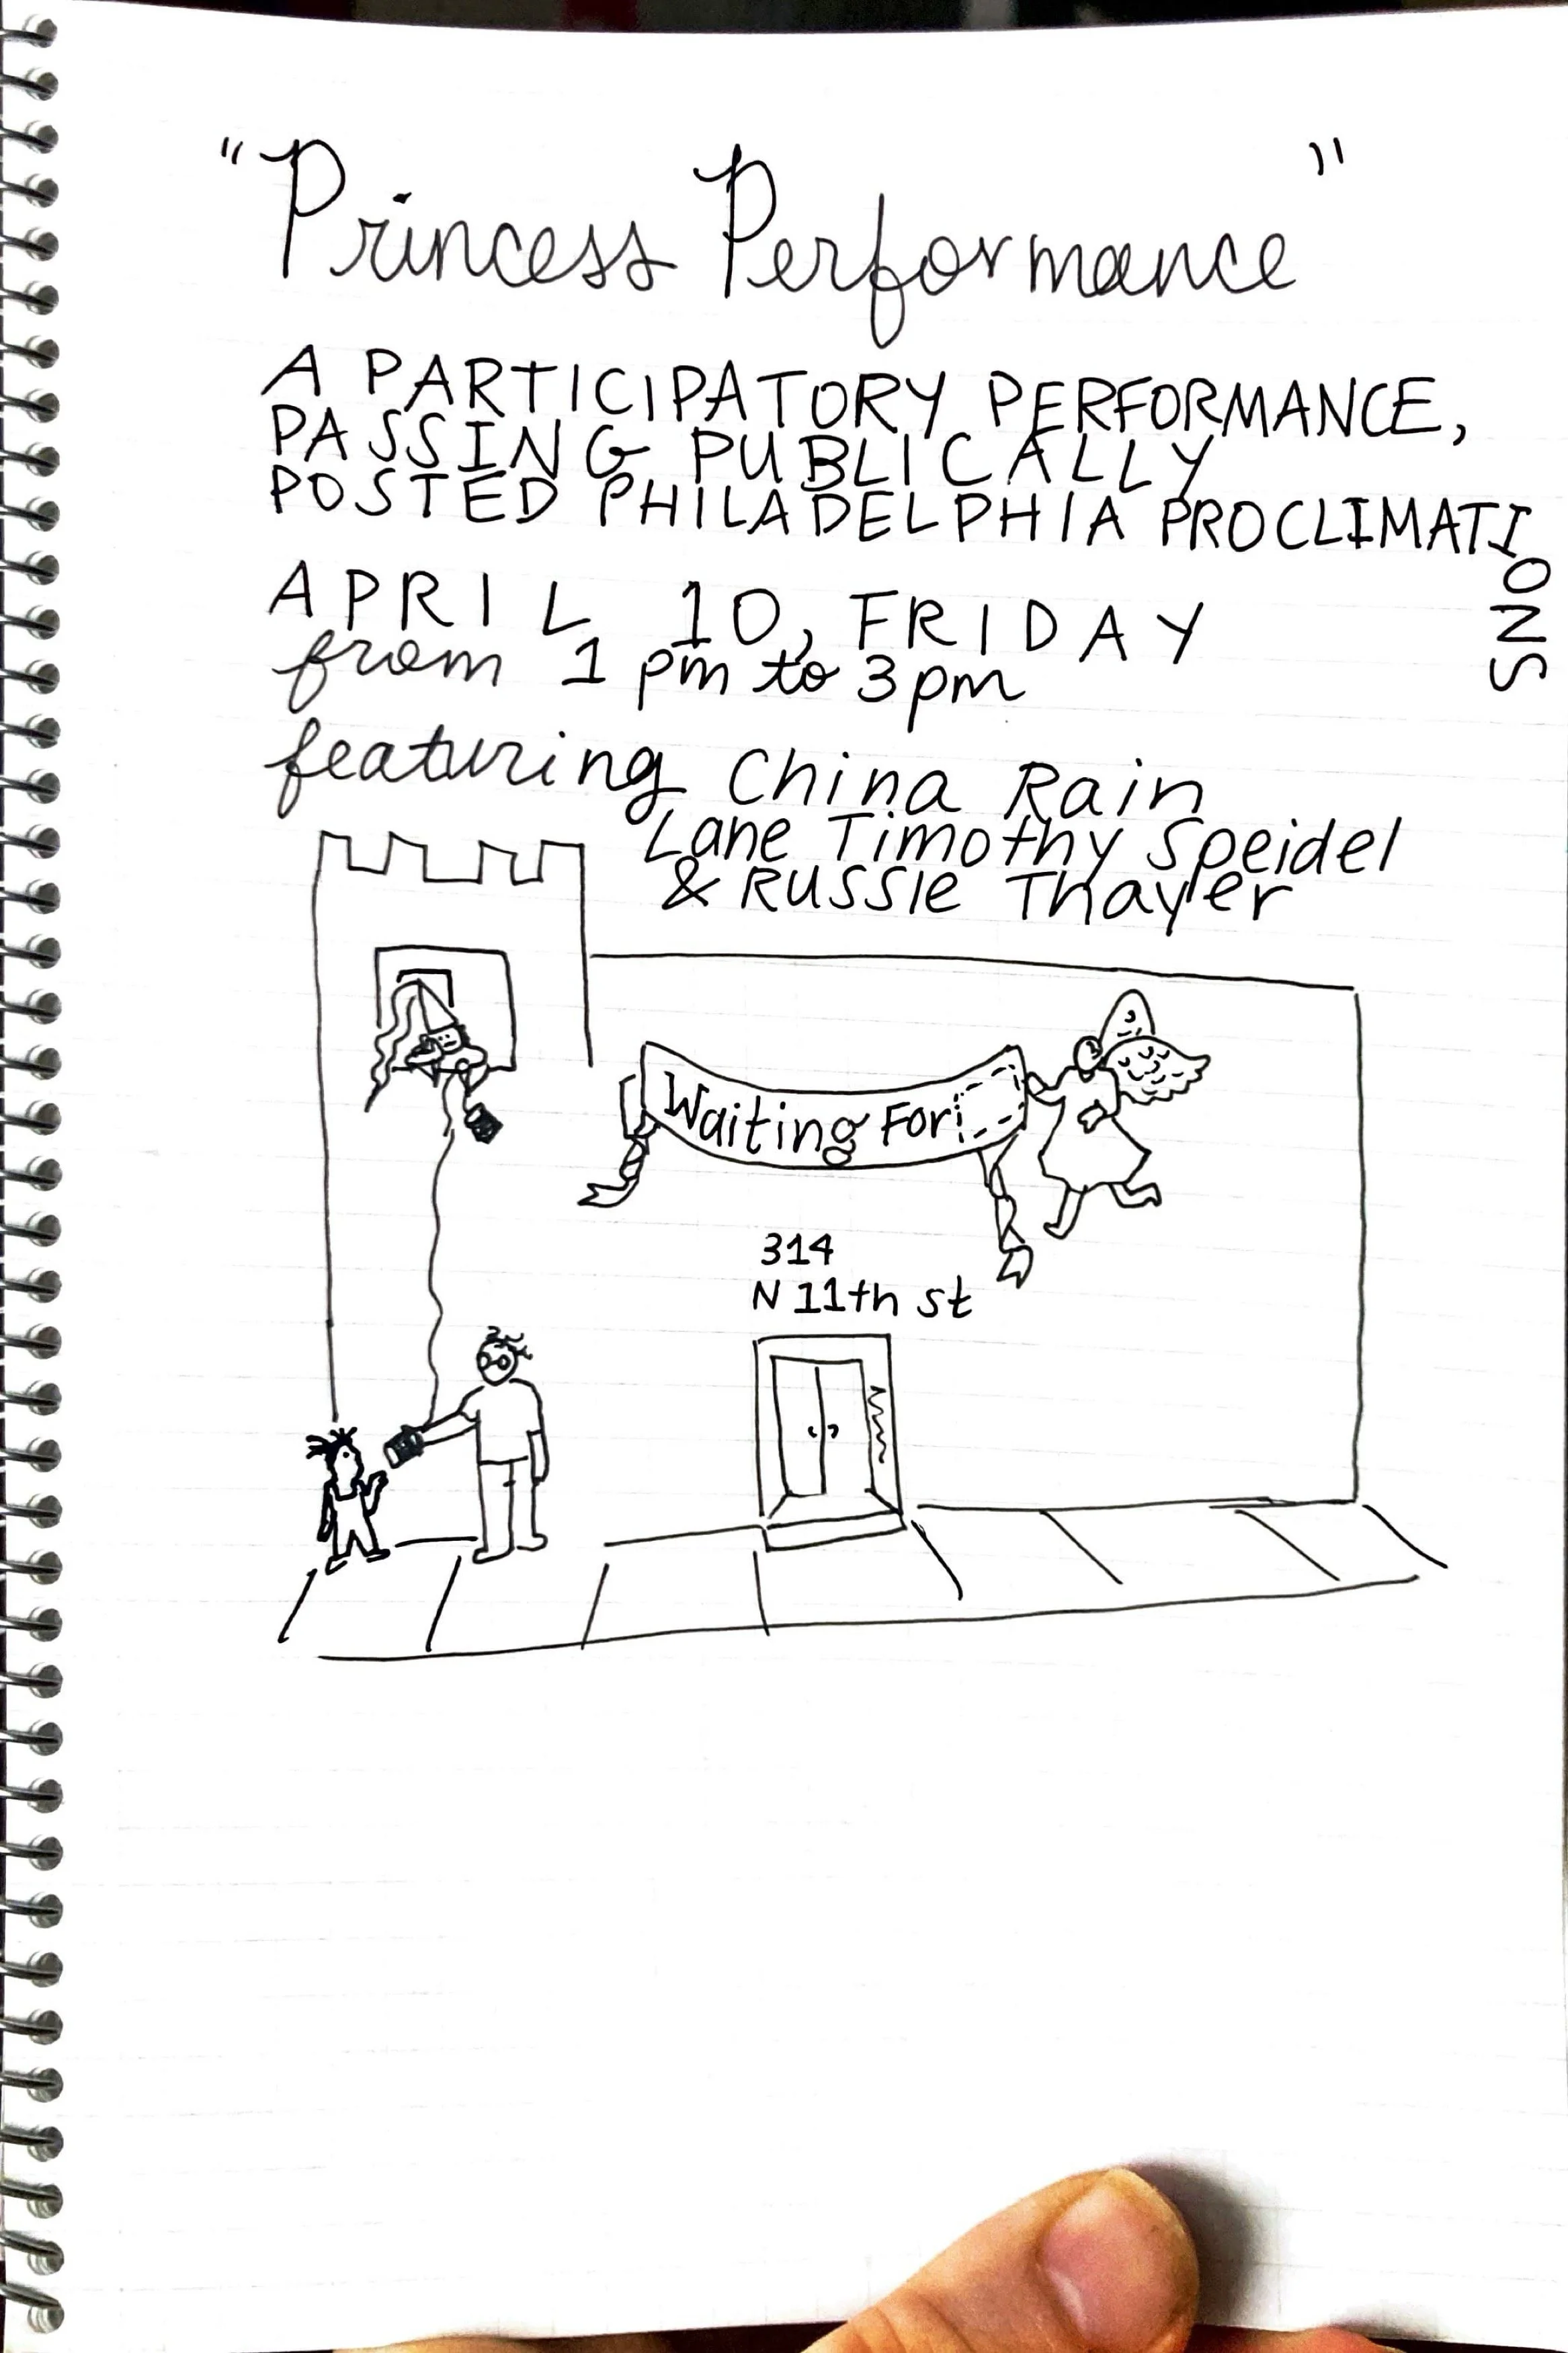 "Princess Performance"
A PARTICIPATORY PERFORMANCE,
PASSING PUBLICALLY
POSTED PHILADELPHIA PROCLIMATIONS
APRIL 10, FRIDAY
from 1 pm to 3 pm
featuring China Rain
Lane Timothy Speidel
& RUSSIE Thayer
Waiting For:
314
N 11th st